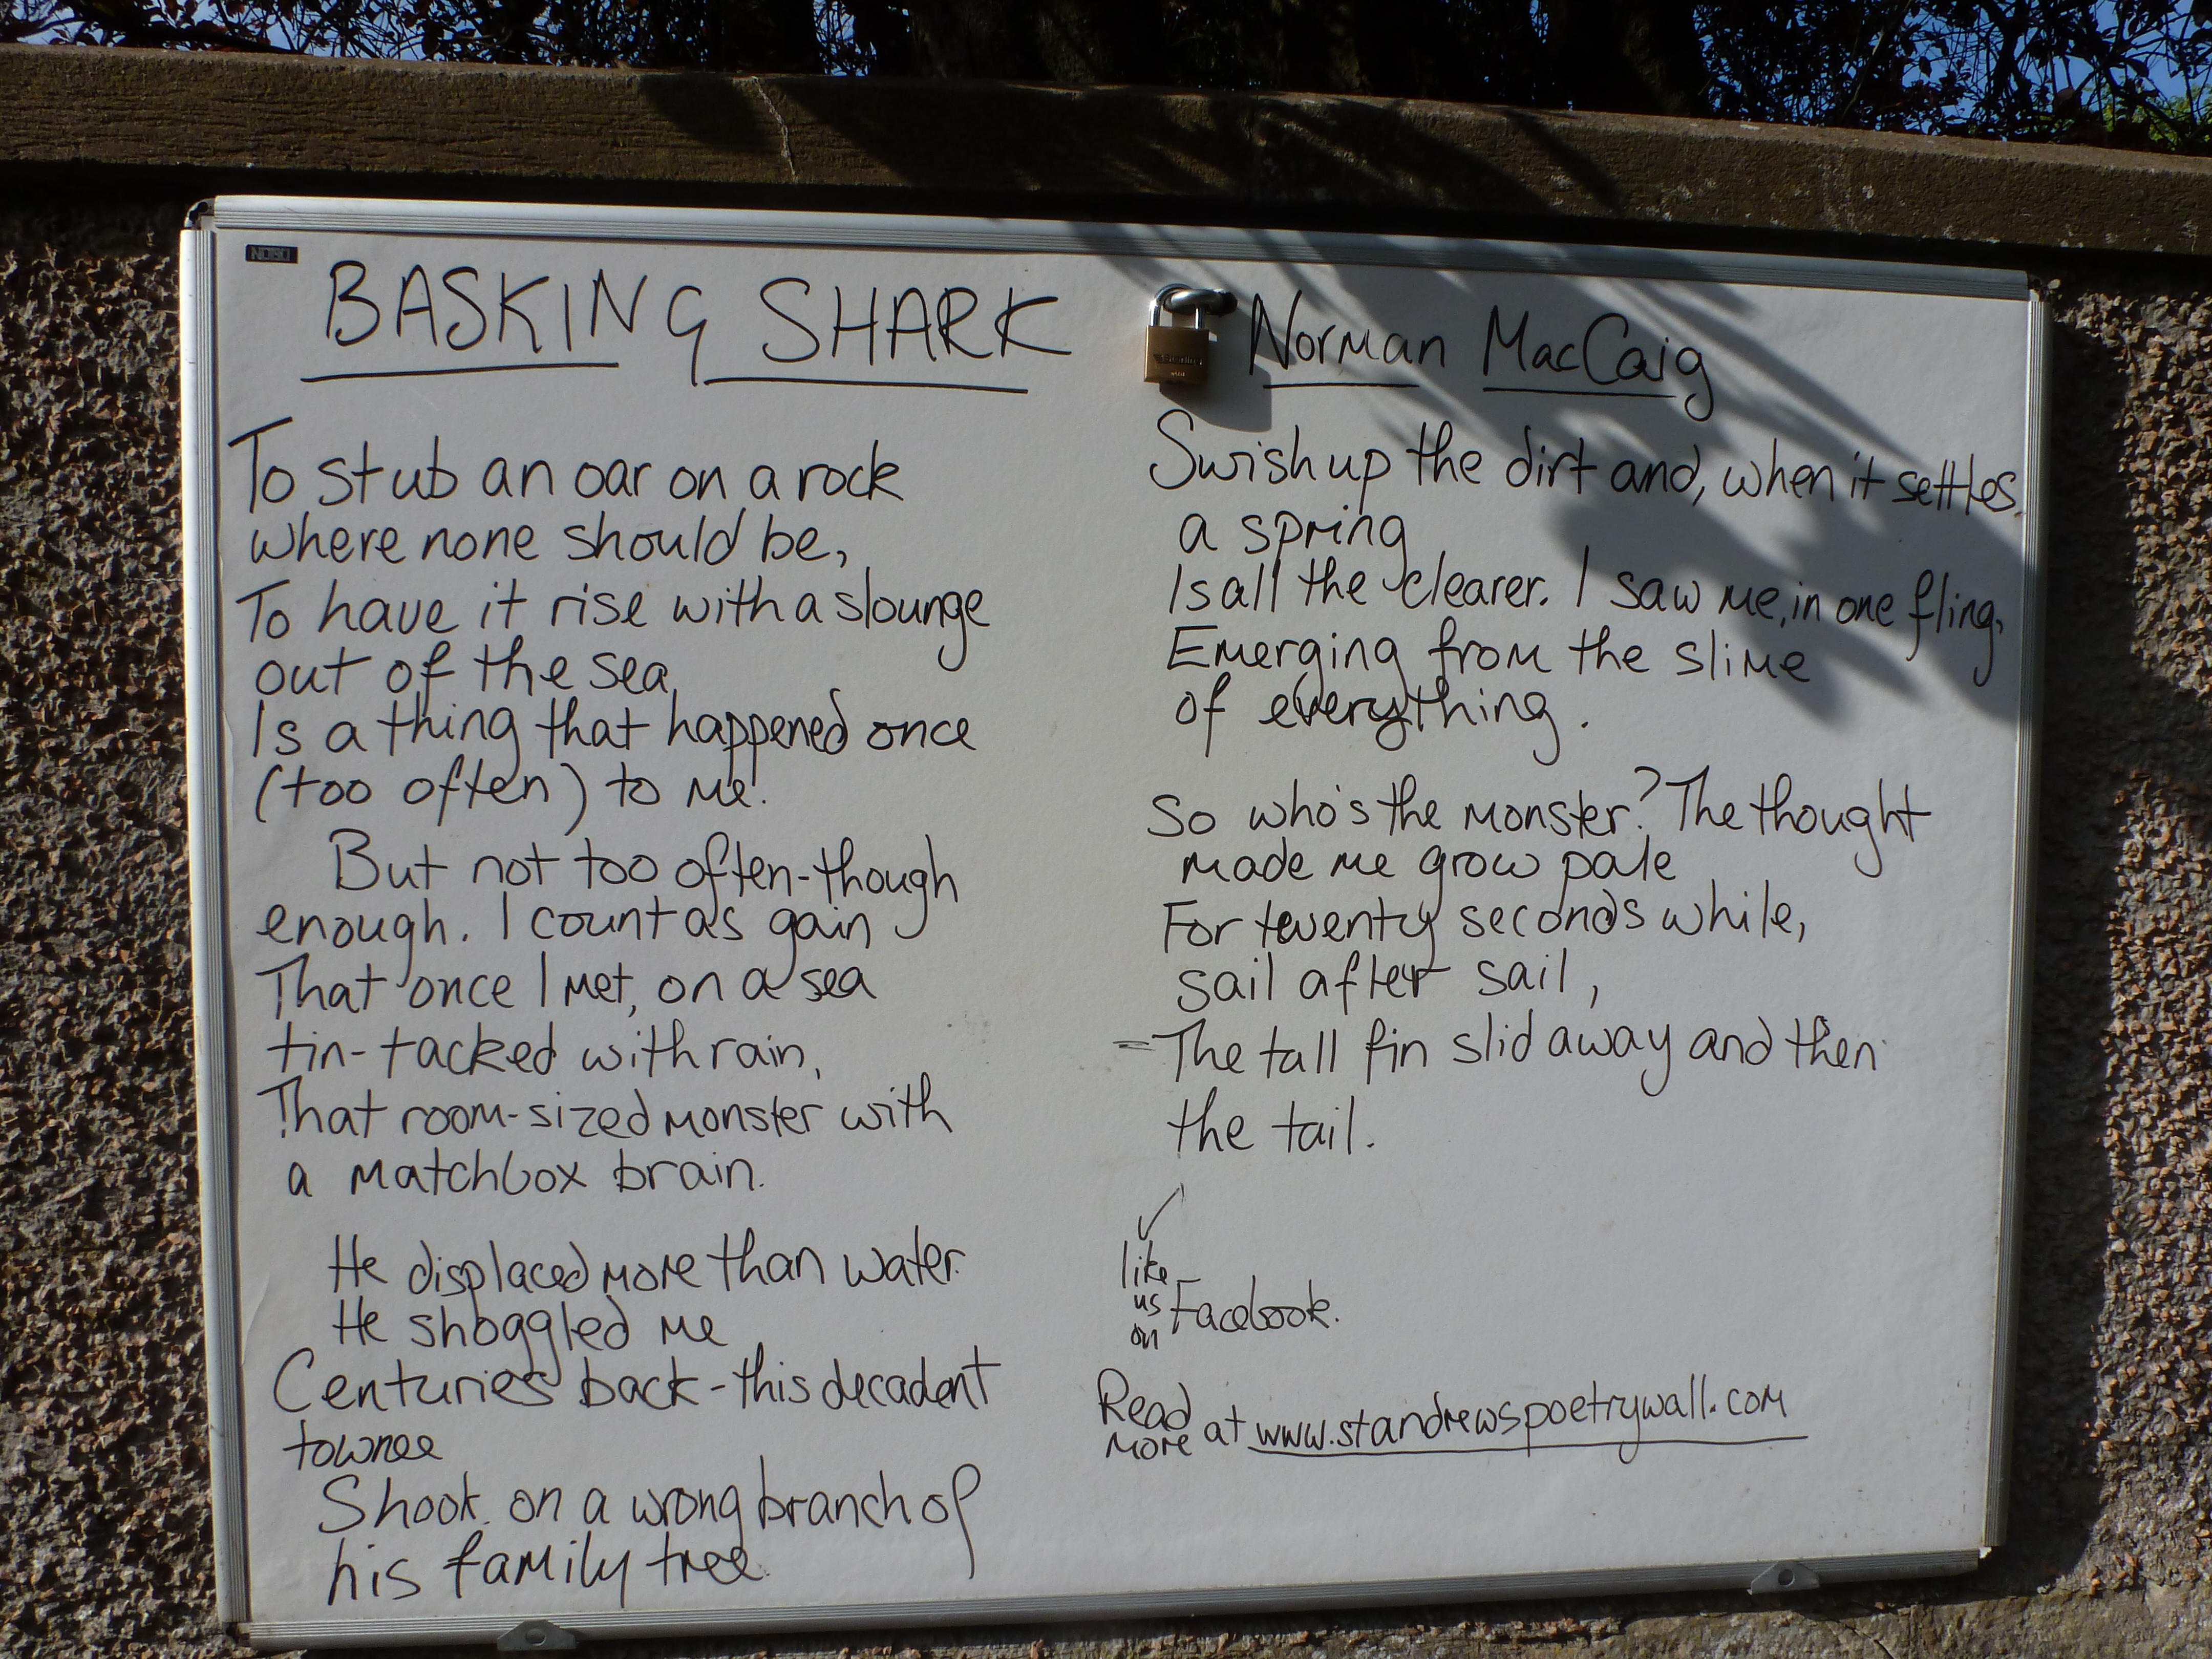 NOBO
BASKING SHARK
To stub an oar on a rock
where none should be,
To have it rise with a slounge
out of the sea,
Is a thing that happened once
(too often) to me.
But not too often-though
enough. I count as gain
That once I met, on a sea
tin-tacked with rain,
That room-sized monster with
a matchbox brain.
He displaced more than water.
He shoggled me
Centuries back - this decadent
townee
Shook on a wrong branch of
his family tree.
Norman MacCaig
Swish up the dirt and, when it settles,
a spring
Is all the clearer. I saw me, in one fling,
Emerging from the slime
of everything.
So who's the monster? The thought
made me grow pale
For twenty seconds while,
sail after sail,
The tall fin slid away and then
the tail.
like
us
on Facebook.
Read
more at www.standrewspoetrywall.com